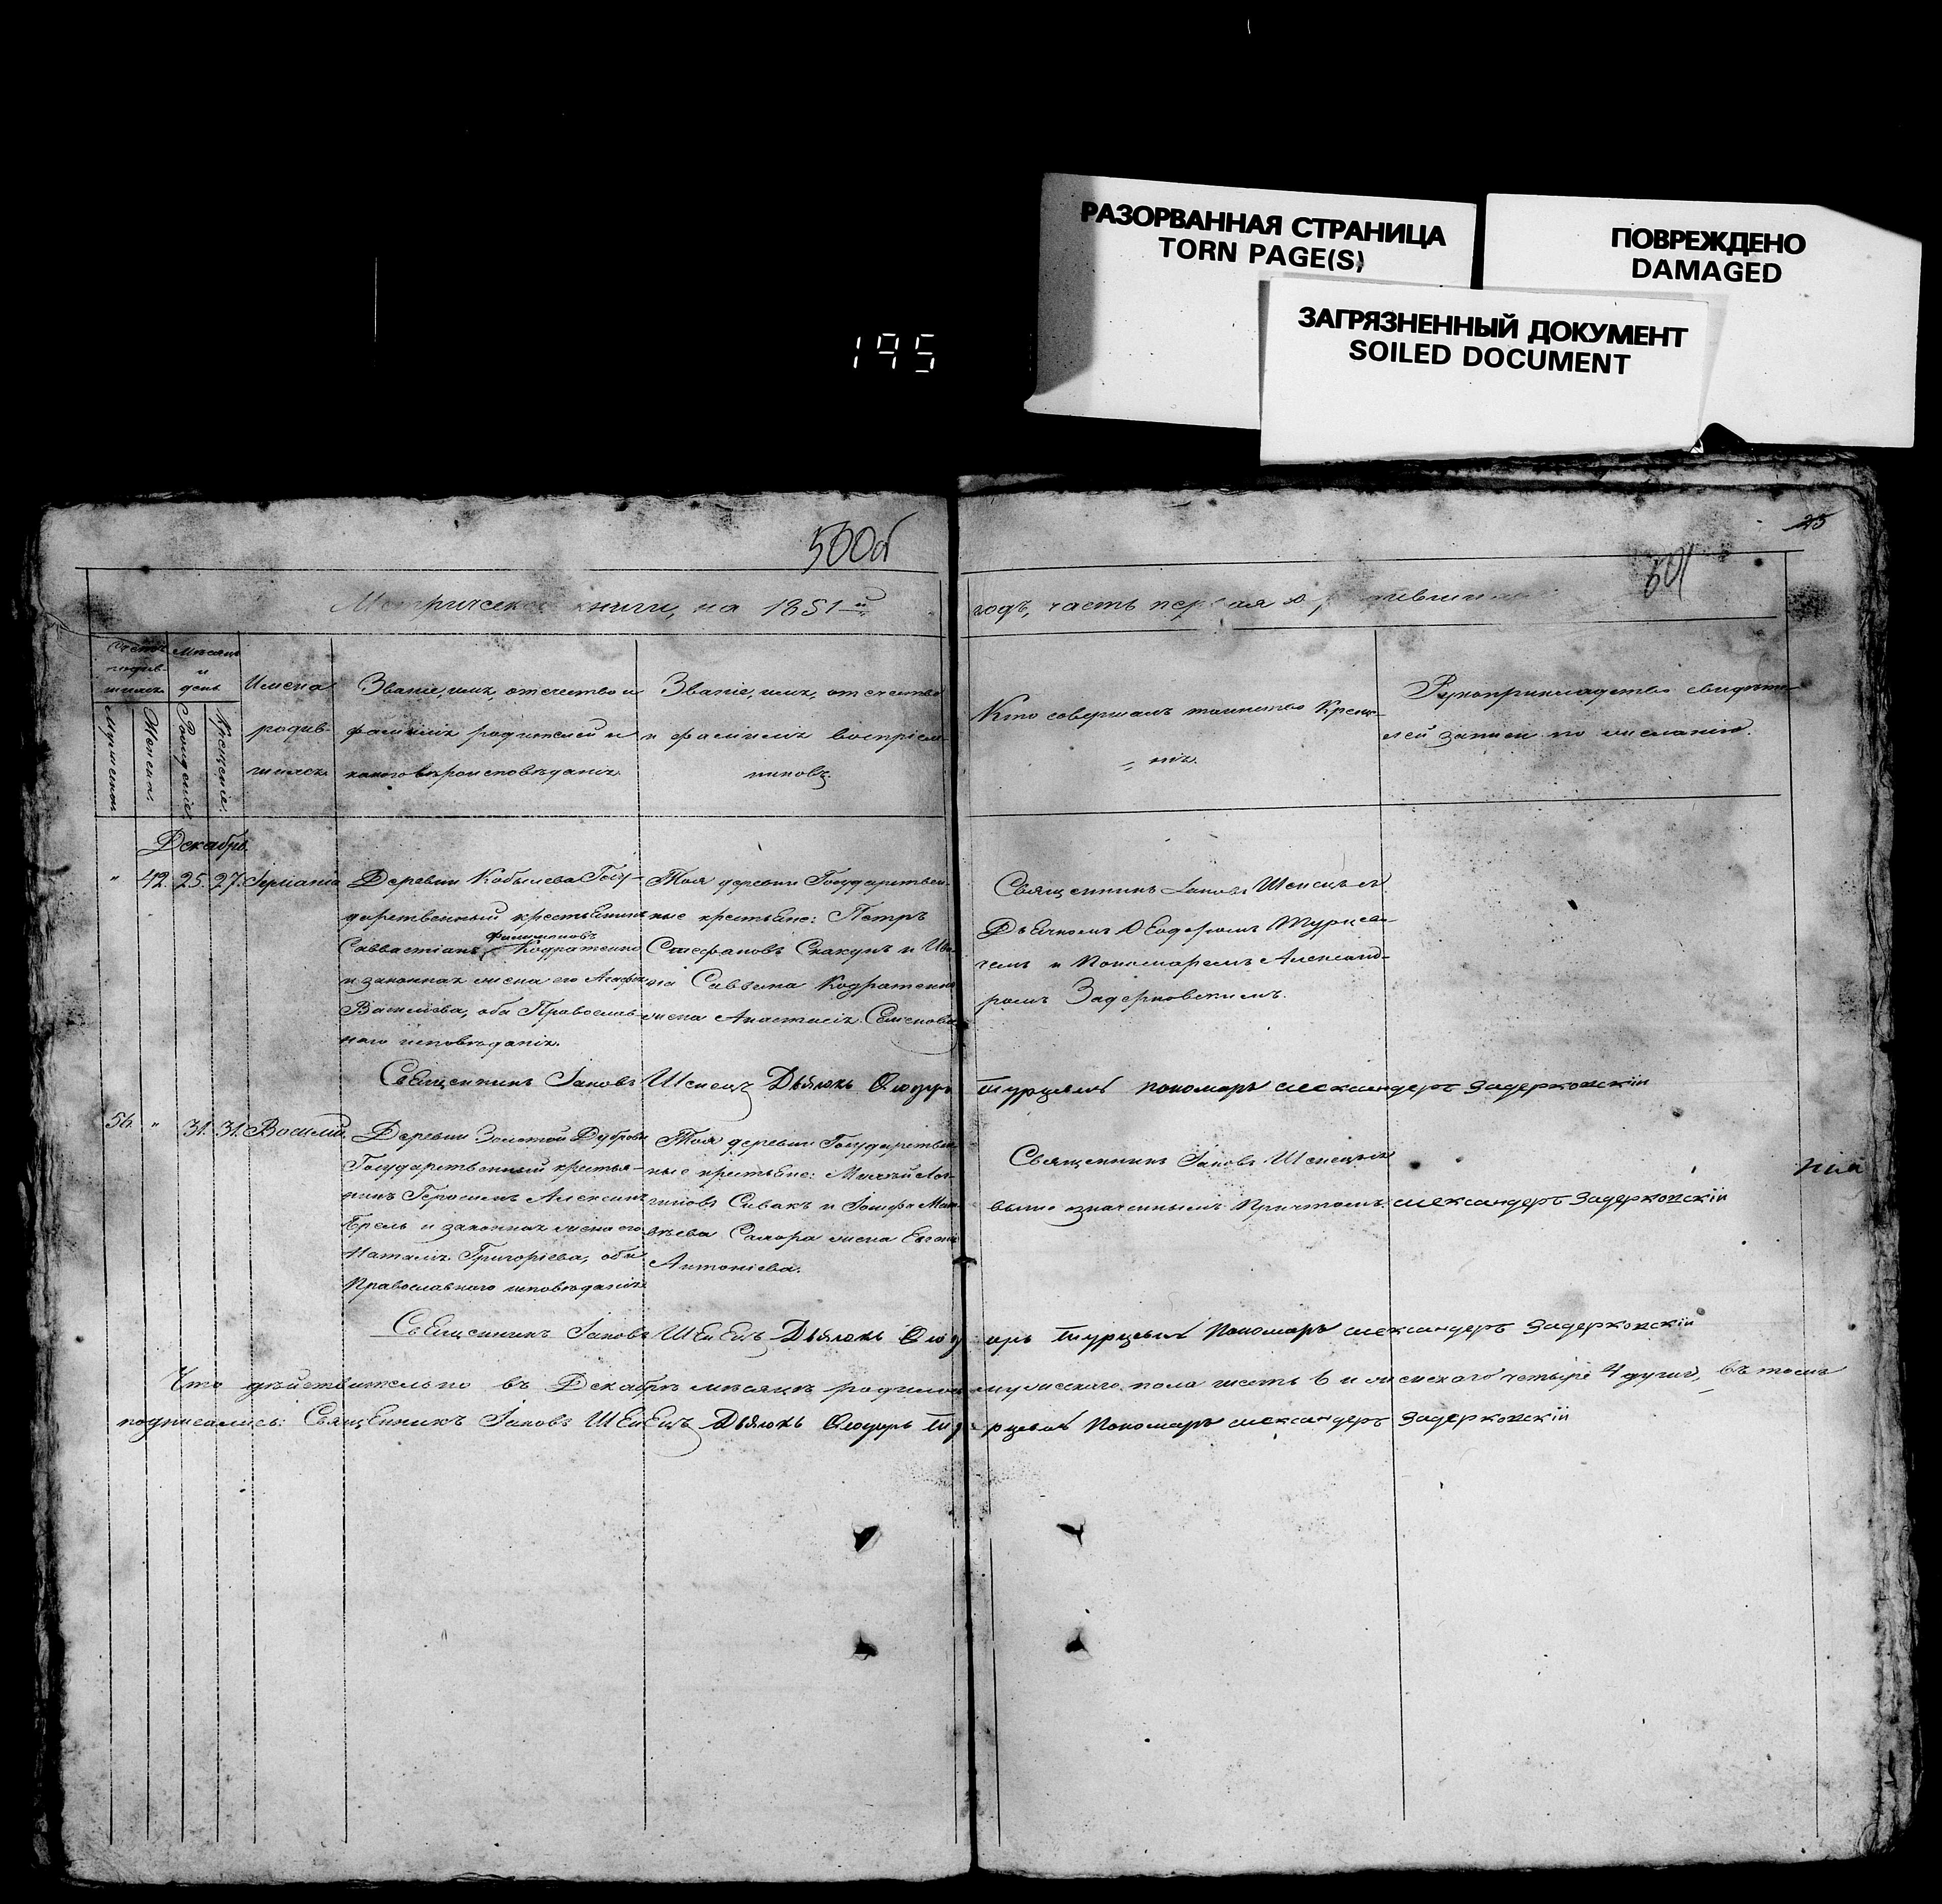 РАЗОРВАННАЯ СТРАНИЦА
TORN PAGE(S)
ПОВРЕЖДЕНО
DAMAGED
ЗАГРЯЗНЕННЫЙ ДОКУМЕНТ
SOILED DOCUMENT
195
500об
25
501
книги, на 1851-й
годъ, часть первая о
Счетъ родив-шихся
Мѣсяцъ и день
Мужеска.
Женска.
Рожденія.
Крещенія.
Имена
родив-
шихся.
Званіе, имя, отчество и
фамилія родителей и
какого вѣроисповѣданія.
Званіе, имя, отчество
и фамилія воспріем-
никовъ.
Кто совершалъ таинство Креще-
нія.
Рукоприкладство свидѣте-
лей записи по желанію.
Декабрь.
" 42. 25. 27.
Деревни Кобылева Госу-
дарственный крестьянинъ
Филимоновъ
Савватіанъ Кодратенко
и законная жена его
Васильева, оба Православ-
наго исповѣданія.
Тоя деревни Государствен-
ные крестьяне: Петръ
Стефановъ Скакунъ и
Саввина Кодратенко
жена Анастасія Семенова
Священникъ Іаковъ Шепецъ съ
Дьячкомъ Ѳеодоромъ Турце-
чемъ и Пономаремъ Александ-
ромъ Задерковскимъ.
Священникъ Іаковъ Шепецъ Дьячокъ Ѳеодоръ Турцевичъ Пономарь Александеръ Задерковскій
56. " 31. 31. Василій.
Деревни Золотой Дубровы
Государственный крестья-
нинъ Герасимъ Алексіевъ
Брель и законная жена его
Наталія Григоріева, оба
Православнаго исповѣданія
Тоя деревни Государствен-
ные крестьяне:
Сивакъ и Іосифа Мат-
вѣева Самора жена
Антоніева.
Священникъ Іаковъ Шепецъ съ
выше означеннымъ Причтомъ. Александеръ Задерковскій
Священникъ Іаковъ Шепецъ Дьячокъ Ѳеодоръ Турцевичъ Пономарь Александеръ Задерковскій
Что дѣйствительно въ Декабрѣ мѣсяцѣ родилось мужескаго пола шесть 6 и женскаго четыре 4 души, въ томъ
подписались: Священникъ Іаковъ Шепецъ Дьячокъ Ѳеодоръ Турцевичъ Пономарь Александеръ Задерковскій